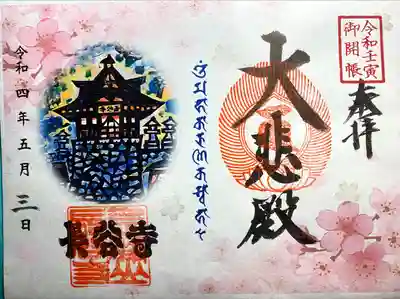 令和壬寅
御開帳
奉拝
大悲殿
令和四年五月三日
長谷寺